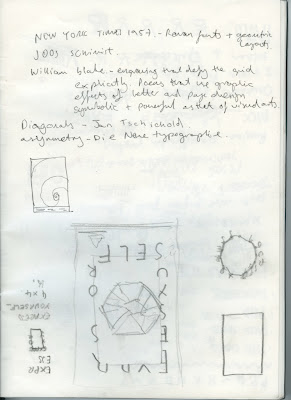 NEW YORK TIMES 1957 - Roman fonts + geometric
layouts
JOOS SCHMIDT.
William Blake - engraving that defy the grid
explicitly. Poems that use graphic
effects of letter and page design
symbolic + powerful as that of visual arts.
Diagonals - Jan Tschichold
asymmetry - Die Neue typographie
SELF
EXPR
4 x 4
YOURSELF
EXPRESS
EXPR